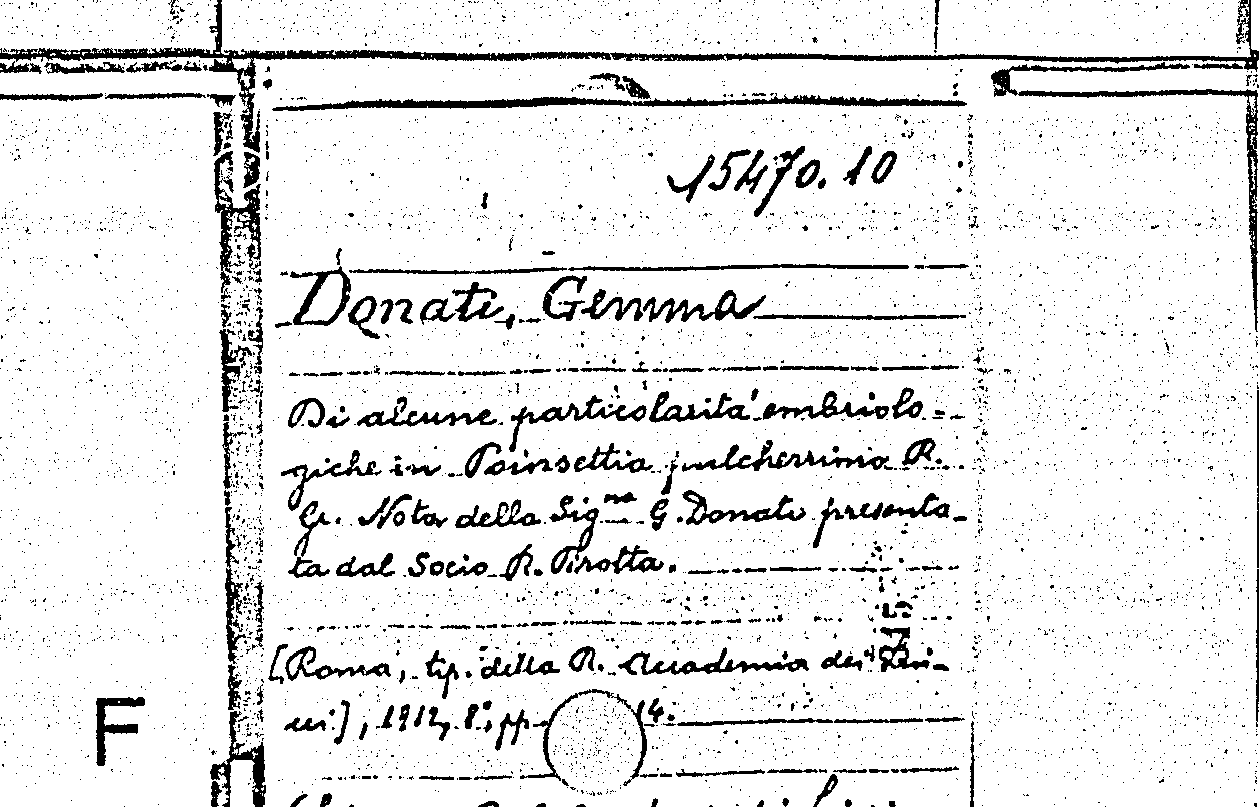 15470.10
Donati, Gemma
Di alcune particolarità embriolo=
giche in Poinsettia pulcherrima R.
Gr. Nota della Sig.na G. Donati presenta-
ta dal Socio R. Pirotta.
[Roma, tip. della R. Accademia dei Lin-
cei], 1912, 8°, pp. 14.
F